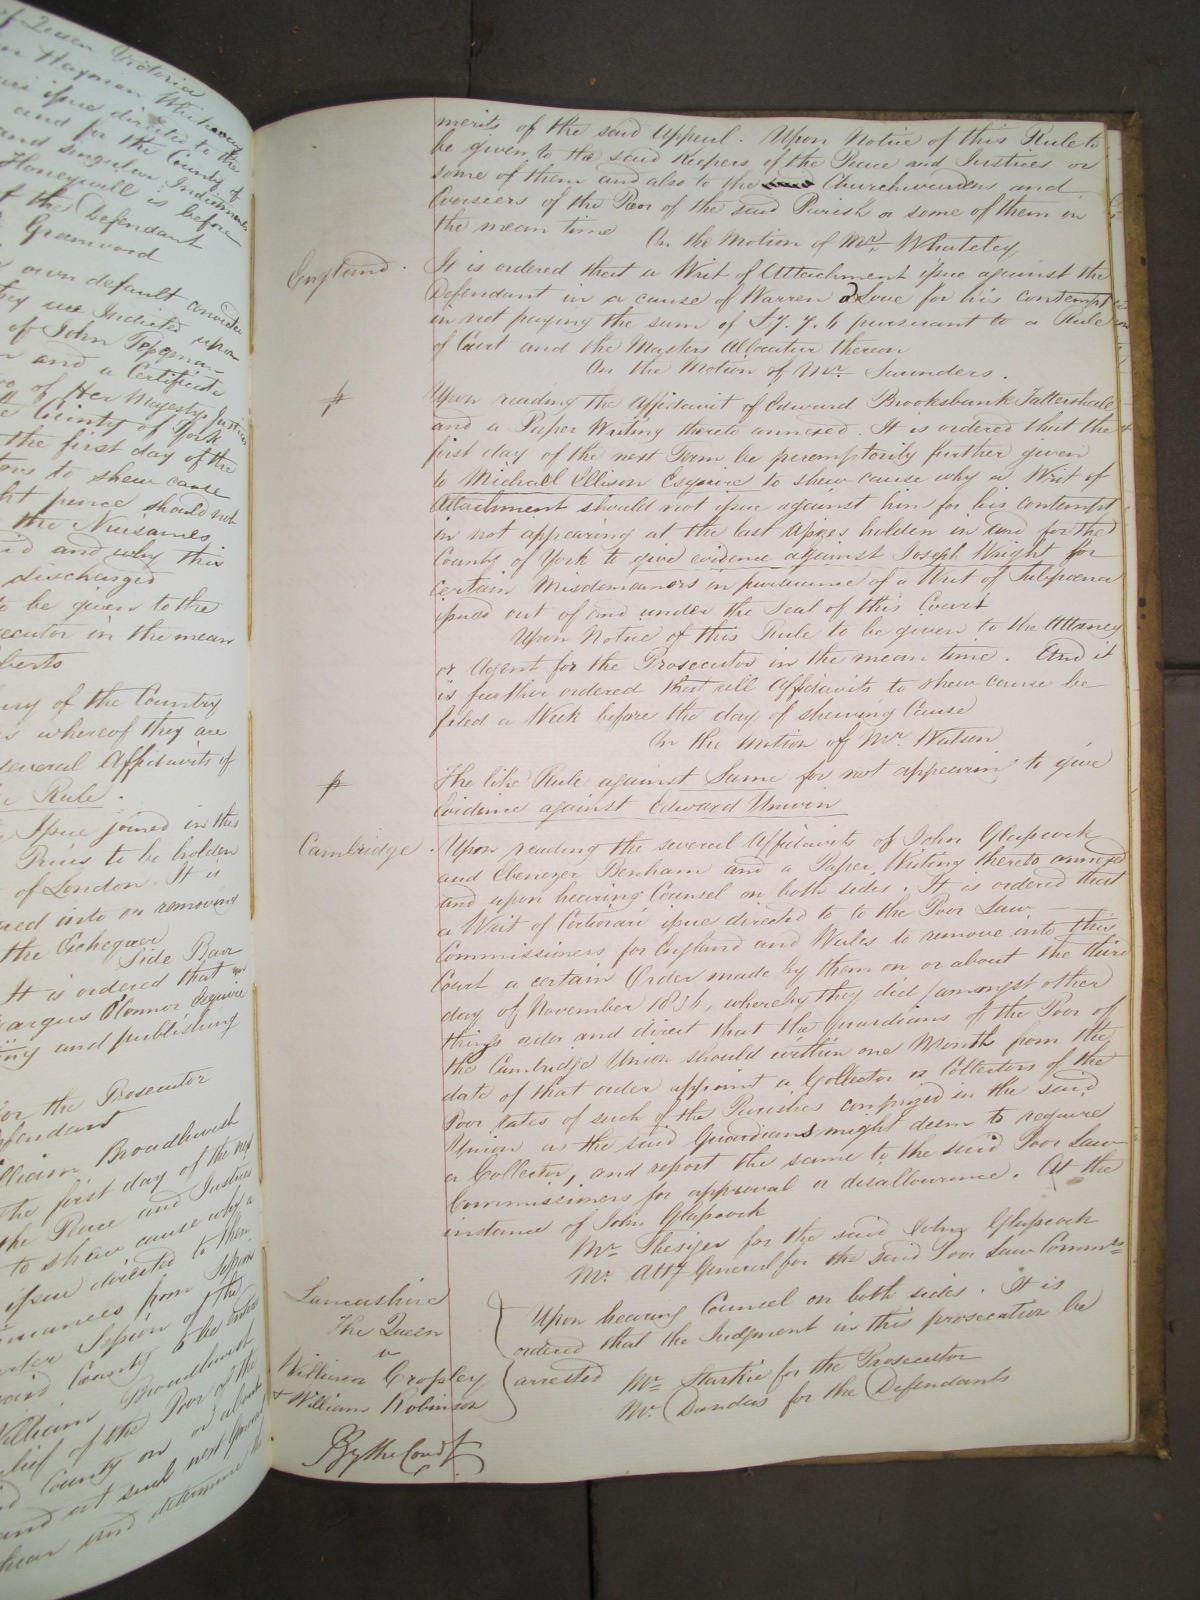 of Queen Victoria
Hayman
issue directed to the
and for the County of
and singular Indictments
Honeywill is before
the Defendant
Greenwood
own default
they are Indicted upon
of John
and a Certificate
of Her Majestys Justices
County of York
the first day of the
to shew cause
pence should not
the Nuisances
and why this
discharged
to be given to the
in the mean
of the Country
whereof they are
several Affidavits of
Rule.
Issue joined in this
Prius to be holden
of London. It is
into on removing
the Exchequer
Side Bar
It is ordered that
Feargus O'Connor Esquire
and publishing
for the Prosecutor
Defendant
William Broadhurst
the first day of the next
the Peace and Justices
to shew cause why a
issue directed to them
from Session
Session of the
said County to the
William Broadhurst
relief of the Poor of the
County on or about
and at such next General
hear and determine the
merits of the said Appeal. Upon Notice of this Rule to
be given to the said Keepers of the Peace and Justices or
some of them and also to the Churchwardens and
Overseers of the Poor of the said Parish or some of them in
the mean time On the Motion of Mr. Whateley
England. It is ordered that a Writ of Attachment issue against the
Defendant in a cause of Warren v Love for his contempt
in not paying the sum of £7. 7. 6 pursuant to a Rule
of Court and the Masters Allocatur thereon
On the Motion of Mr. Saunders.
Upon reading the Affidavit of Edward Brooksbank Tattershall
and a Paper Writing thereto annexed. It is ordered that the
first day of the next Term be peremptorily further given
to Michael Ellison Esquire to shew cause why a Writ of
Attachment should not issue against him for his contempt
in not appearing at the last Assizes holden in and for the
County of York to give evidence against Joseph Wright for
certain Misdemeanors in pursuance of a Writ of Subpoena
issued out of and under the Seal of this Court
Upon Notice of this Rule to be given to the Attorney
or Agent for the Prosecutor in the mean time. And it
is further ordered that all Affidavits to shew cause be
filed a Week before the day of shewing Cause
On the Motion of Mr. Watson
The like Rule against Same for not appearing to give
Evidence against Edward Unwin
Cambridge. Upon reading the several Affidavits of John Glasscock
and Ebenezer Benham and a Paper Writing thereto annexed
and upon hearing Counsel on both sides. It is ordered that
a Writ of Certiorari issue directed to to the Poor Law
Commissioners for England and Wales to remove into this
Court a certain Order made by them on or about the third
day of November 1836, whereby they did (amongst other
things order and direct that the Guardians of the Poor of
the Cambridge Union should within one Month from the
date of that order appoint a Collector or Collectors of the
Poor rates of such of the Parishes comprized in the said
Union as the said Guardians might deem to require
a Collector, and report the same to the said Poor Law
Commissioners for approval or disallowance. At the
instance of John Glasscock
Mr. Thesiger for the said John Glasscock
Mr. Atty General for the said Poor Law Commrs
Lancashire
The Queen
v
William Cropley
& William Robinson
Upon hearing Counsel on both sides. It is
ordered that the Judgment in this prosecution be
arrested Mr. Starkie for the Prosecutor
Mr. Dundas for the Defendants
By the Court